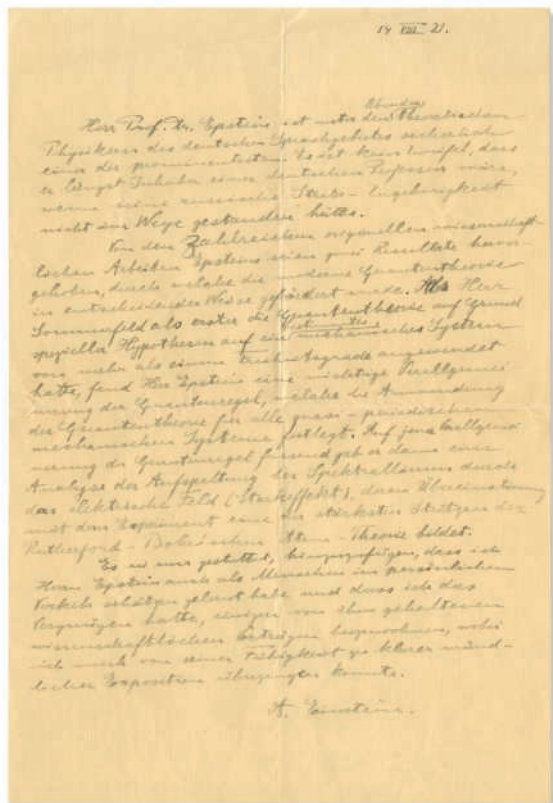 14 VIII 21.
lebenden
Herr Prof. Dr. Epstein ist unter den theoretischen
Physikern des deutschen Sprachgebietes sicherlich
einer der prominentesten. Es ist kein Zweifel, dass
er längst Inhaber einer deutschen Professur wäre,
wenn seine russische Staats-Angehörigkeit
nicht im Wege gestanden hätte.
Von den zahlreichen originellen wissenschaft-
lichen Arbeiten Epsteins seien zwei Resultate hervor-
gehoben, durch welche die moderne Quantentheorie
in entscheidender Weise gefördert wurde. Als Herr
Sommerfeld als erster die Quantentheorie auf Grund
spezieller Hypothesen auf ein mechanisches System
von mehr als einem Freiheitsgrade angewendet
hatte, fand Herr Epstein eine wichtige Verallgemei
nerung der Quantenregel, welche die Anwendung
der Quantentheorie für alle quasi-periodischen
mechanischen Systeme festlegt. Auf jene Verallgemei
nerung der Quantenregel fussend gab er dann eine
Analyse der Aufspaltung der Spektrallinien durch
das elektrische Feld (Starkeffekt), deren Übereinstimmung
mit dem Experiment eine der stärksten Stützen der
Rutherford-Bohr'schen Atom-Theorie bildet.
Es sei mir gestattet, hinzuzufügen, dass ich
Herrn Epstein auch als Menschen im persönlichen
Verkehr schätzen gelernt habe und dass ich das
Vergnügen hatte, einigen von ihm gehaltenen
wissenschaftlichen Vorträgen beizuwohnen, wobei
ich mich von seiner Fähigkeit zu klarer münd-
licher Exposition überzeugen konnte.
A. Einstein.